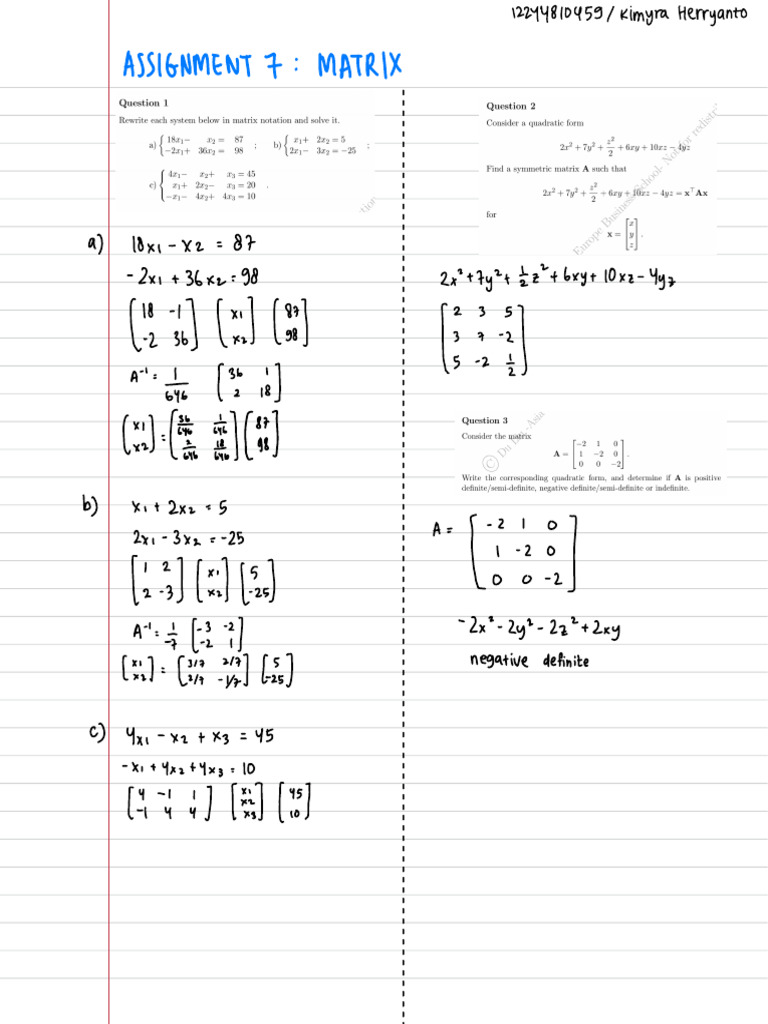 12244810459/Kimyra Herryanto
ASSIGNMENT 7 : MATRIX
Question 1
Rewrite each system below in matrix notation and solve it.
a) { 18x₁− x₂ = 87 ; b) { x₁+ 2x₂ = 5 ;
−2x₁+ 36x₂ = 98 2x₁− 3x₂ = −25
c) { 4x₁− x₂+ x₃ = 45
x₁+ 2x₂− x₃ = 20 .
−x₁− 4x₂+ 4x₃ = 10
a) 18x1 − x2 = 87
-2x1 + 36x2 = 98
[18 -1] [x1] [87]
[-2 36] [x2] [98]
A⁻¹ = 1/646 [36 1]
[2 18]
[x1] = [36/646 1/646] [87]
[x2] [2/646 18/646] [98]
b) x1 + 2x2 = 5
2x1 - 3x2 = -25
[1 2] [x1] [5]
[2 -3] [x2] [-25]
A⁻¹ = 1/-7 [-3 -2]
[-2 1]
[x1] = [3/7 2/7] [5]
[x2] [2/7 -1/7] [-25]
c) 4x1 − x2 + x3 = 45
-x1 + 4x2 + 4x3 = 10
[4 -1 1] [x1] [45]
[-1 4 4] [x2] [10]
[x3]
Question 2
Consider a quadratic form
2x² + 7y² + z²/2 + 6xy + 10xz − 4yz
Find a symmetric matrix A such that
2x² + 7y² + z²/2 + 6xy + 10xz − 4yz = x⊤Ax
for
x = [x]
[y] .
[z]
Europe Business School- Not for redistr
tion
2x² + 7y² + 1/2 z² + 6xy + 10xz − 4yz
[2 3 5]
[3 7 -2]
[5 -2 1/2]
Question 3
Consider the matrix
A = [−2 1 0]
[1 −2 0] .
[0 0 −2]
-Asia
Write the corresponding quadratic form, and determine if A is positive
definite/semi-definite, negative definite/semi-definite or indefinite.
A = [-2 1 0]
[1 -2 0]
[0 0 -2]
-2x² - 2y² - 2z² + 2xy
negative definite